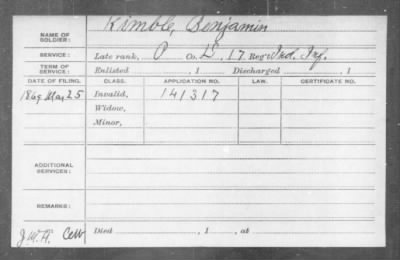 NAME OF SOLDIER: Kimble, Benjamin
SERVICE: Late rank, P Co. D, 17 Reg't Ind. Inf.
TERM OF SERVICE: Enlisted , 1 Discharged , 1
DATE OF FILING. CLASS. APPLICATION NO. LAW. CERTIFICATE NO.
1869 Mar 25 Invalid, 141317
Widow,
Minor,
ADDITIONAL SERVICES:
REMARKS:
Died , 1 , at